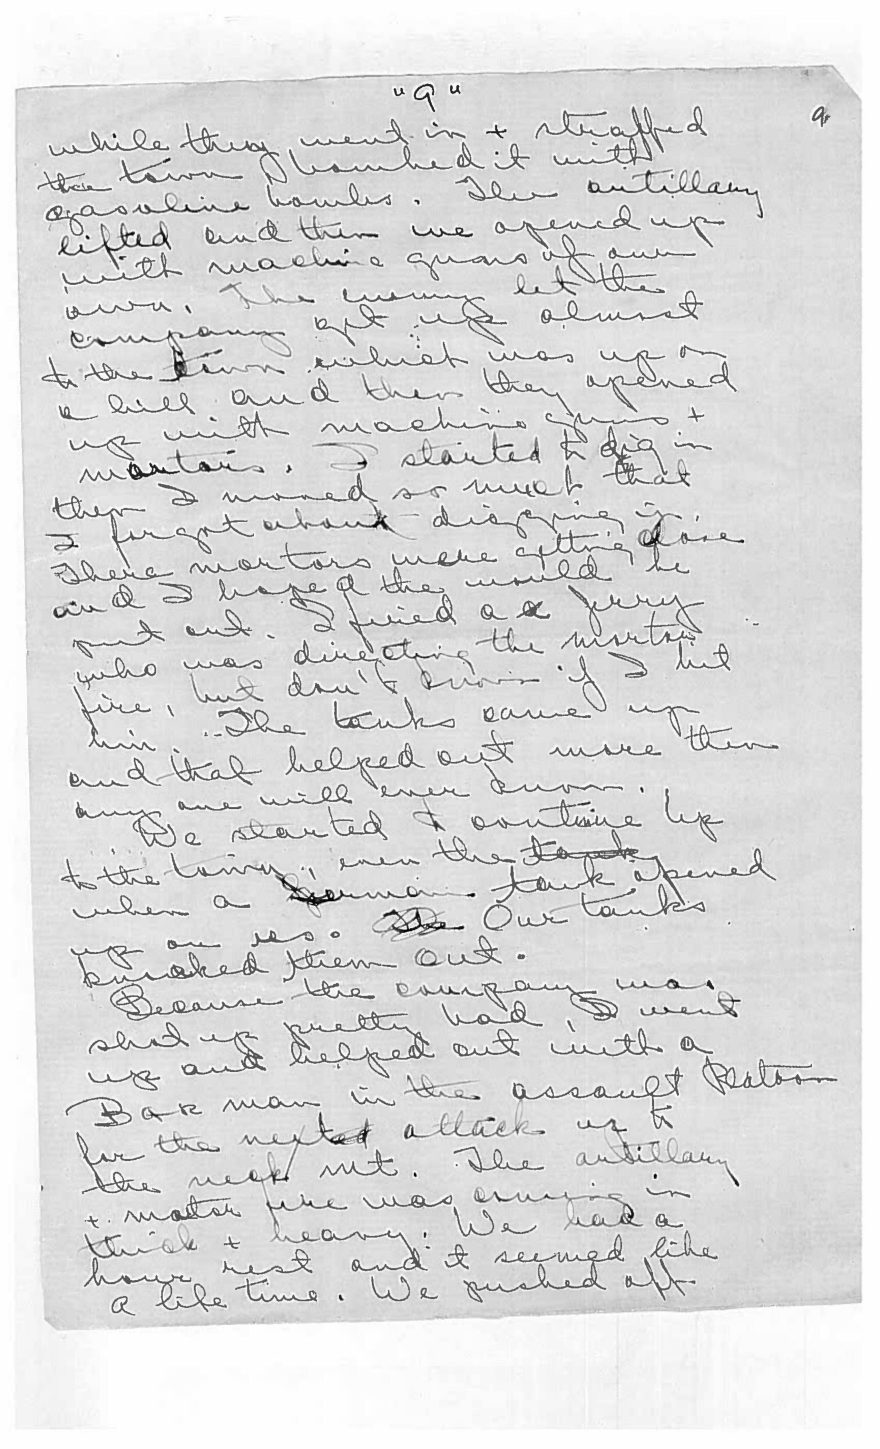 "9"
9.
while they went in + straffed
the town & bombed it with
gasoline bombs. The artillary
lifted and then we opened up
with machine guns of our
own. The enemy let the
company get up almost
to the town which was up on
a hill and then they opened
up with machine guns +
mortars. I started to dig in
then I moved so much that
I forgot about digging in.
There mortors were getting close
and I hoped the would be
put out. I fired a a jerry
who was directing the mortar
fire, but don't know if I hit
him. The tanks came up
and that helped out more then
any one will ever know.
We started to continue up
to the town, even the tank
when a German tank opened
up on us. The Our tanks
knocked them out.
Because the company was
shot up pretty bad I went
up and helped out with a
Bar man in the assault Platoon
for the next attack up to
the next mt. The artillary
+ motar fire was coming in
thick + heavy. We had a
hour rest and it seemed like
a life time. We pushed off